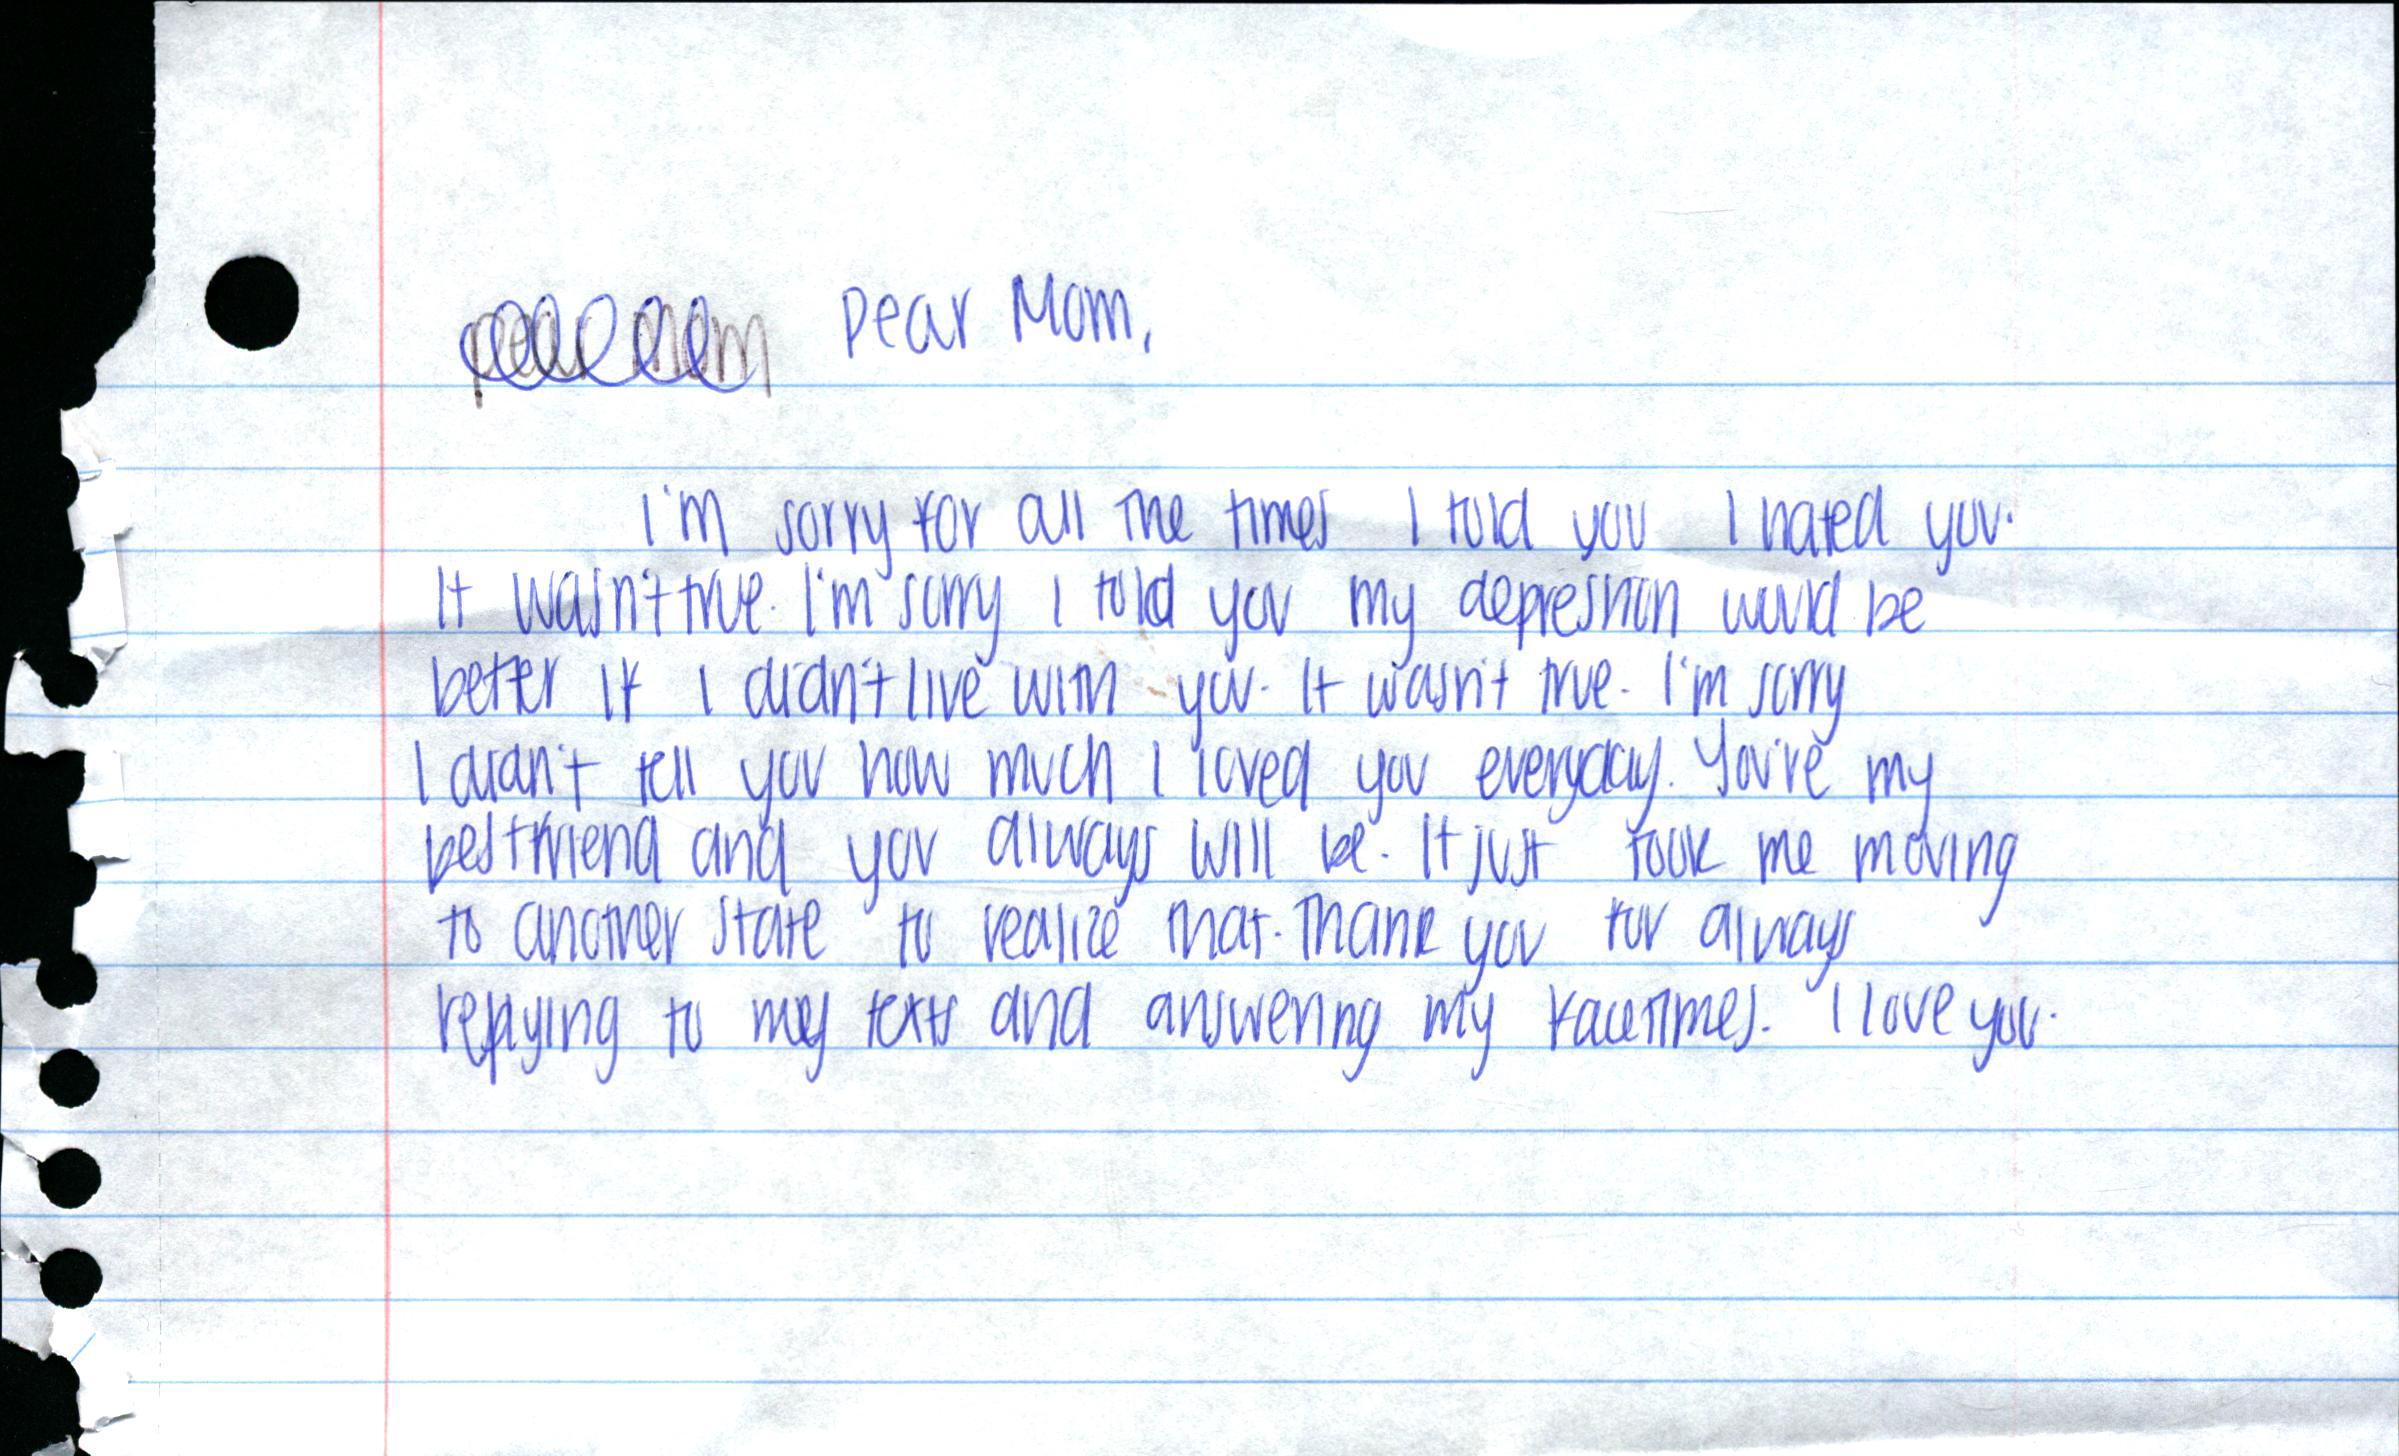 Dear Mom Dear Mom,
I'm sorry for all the times I told you I hated you.
It wasn't true. I'm sorry I told you my depression would be
better if I didn't live with you. It wasn't true. I'm sorry
I didn't tell you how much I loved you everyday. You're my
bestfriend and you always will be. It just took me moving
to another state to realize that. Thank you for always
replying to my texts and answering my facetimes. I love you.